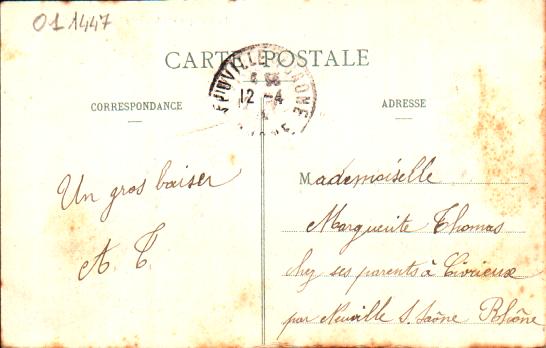 01 1447
CARTE POSTALE
12 -4
CORRESPONDANCE
ADRESSE
Un gros baiser
A. T.
Mademoiselle
Marguerite Thomas
chez ses parents à Civrieux
par Neuville S. Saône Rhône